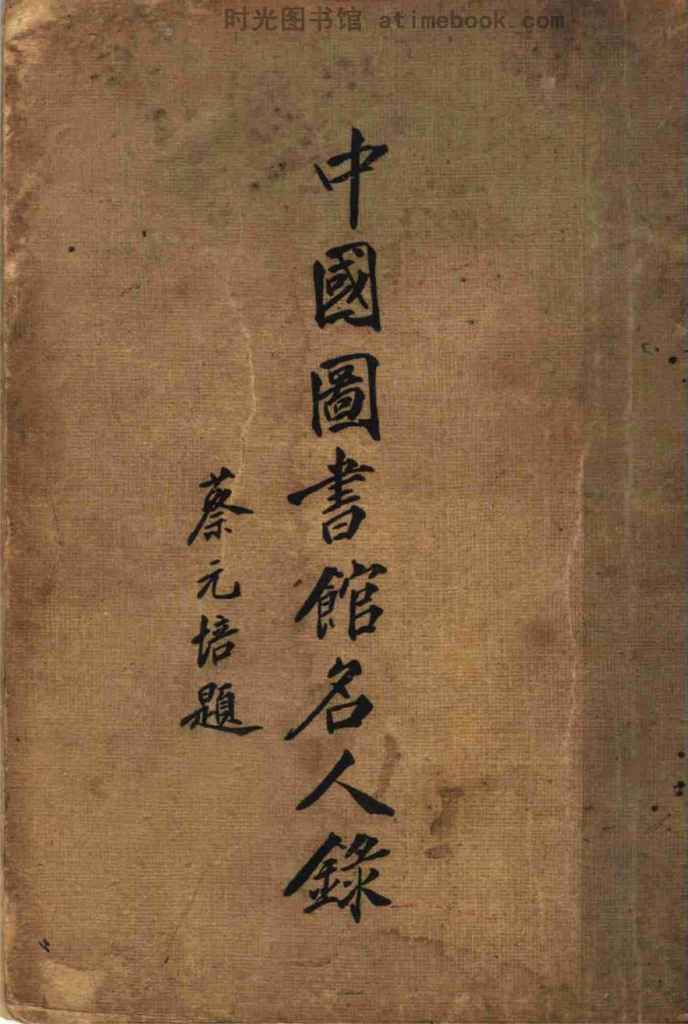 时光图书馆 atimebook.com
中國圖書館名人錄
蔡元培題